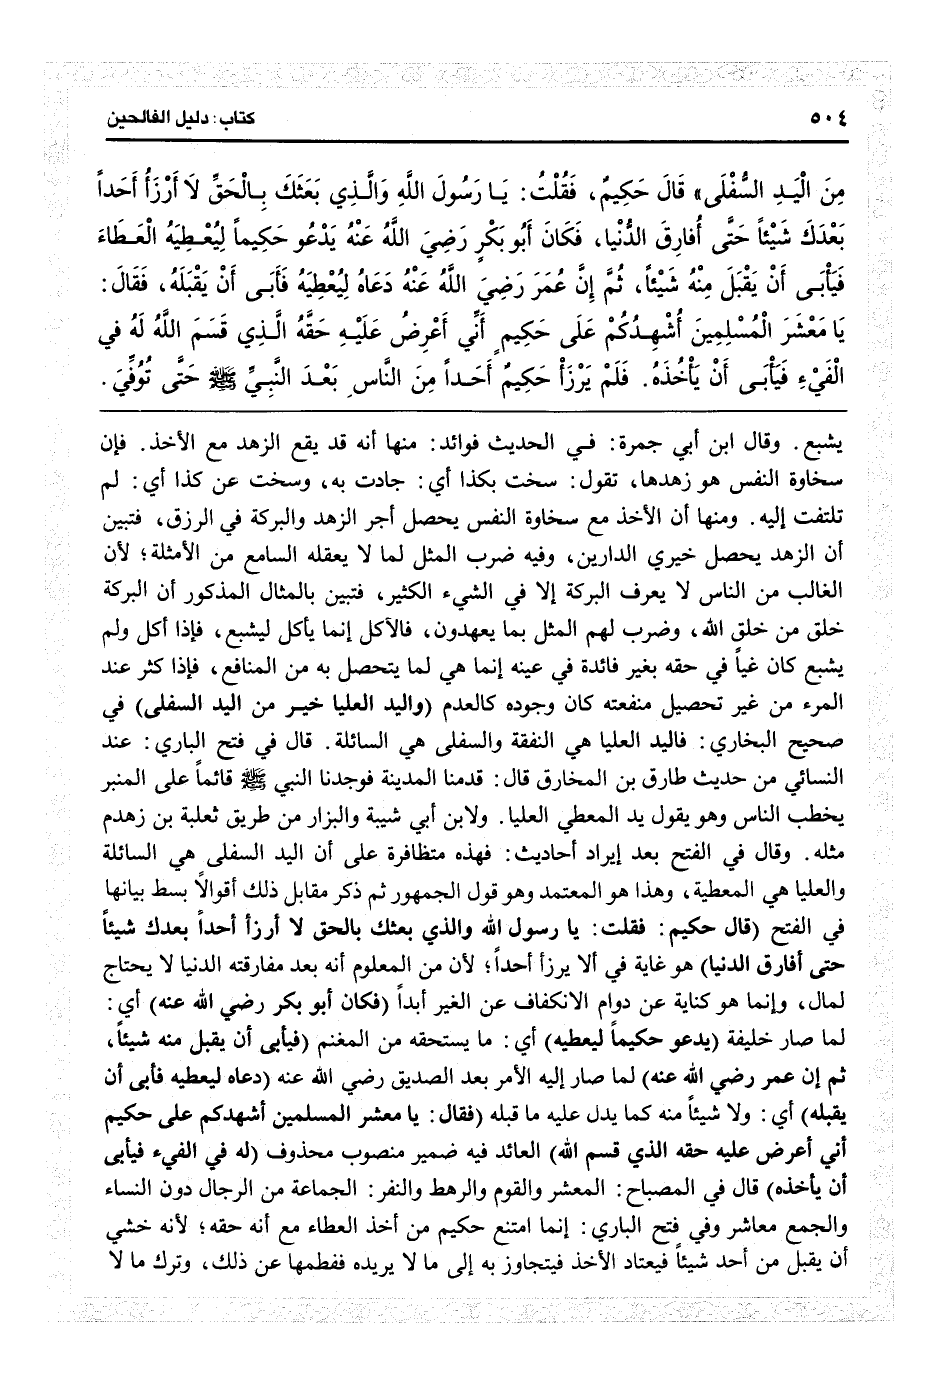 ٥٠٤
كتاب: دليل الفالحين
مِنَ الْيَـدِ السُّفْلَى» قَالَ حَكِيمٌ، فَقُلْتُ: يَـا رَسُولَ اللَّهِ وَالَّـذِي بَعَثَكَ بِـالْحَقِّ لَا أَرْزَأُ أَحَداً
بَعْدَكَ شَيْئاً حَتَّى أُفارِقَ الدُّنْيا، فَكَانَ أَبُو بَكْرٍ رَضِيَ اللَّهُ عَنْهُ يَدْعُو حَكِيماً لِيُعْـطِيَهُ الْعَـطَاءَ
فَيَأْبَـى أَنْ يَقْبَلَ مِنْهُ شَيْئاً، ثُمَّ إِنَّ عُمَرَ رَضِيَ اللَّهُ عَنْهُ دَعَاهُ لِيُعْطِيَهُ فَأَبَـى أَنْ يَقْبَلَهُ، فَقَالَ:
يَا مَعْشَرَ الْمُسْلِمِينَ أُشْهِـدُكُمْ عَلَى حَكِيمٍ أَنِّي أَعْرِضُ عَلَيْـهِ حَقَّهُ الَّـذِي قَسَمَ اللَّهُ لَهُ في
الْفَيْءِ فَيَأْبَـى أَنْ يَأْخُذَهُ. فَلَمْ يَرْزَأْ حَكِيمٌ أَحَـداً مِنَ النَّاسِ بَعْـدَ النَّبِيِّ ﷺ حَتَّى تُوُفِّيَ.
يشبع. وقال ابن أبي جمرة: فـي الحديث فوائد: منها أنه قد يقع الزهد مع الأخذ. فإن
سخاوة النفس هو زهدها، تقول: سخت بكذا أي: جادت به، وسخت عن كذا أي: لم
تلتفت إليه. ومنها أن الأخذ مع سخاوة النفس يحصل أجر الزهد والبركة في الرزق، فتبين
أن الزهد يحصل خيري الدارين، وفيه ضرب المثل لما لا يعقله السامع من الأمثلة؛ لأن
الغالب من الناس لا يعرف البركة إلا في الشيء الكثير، فتبين بالمثال المذكور أن البركة
خلق من خلق الله، وضرب لهم المثل بما يعهدون، فالآكل إنما يأكل ليشبع، فإذا أكل ولم
يشبع كان غياً في حقه بغير فائدة في عينه إنما هي لما يتحصل به من المنافع، فإذا كثر عند
المرء من غير تحصيل منفعته كان وجوده كالعدم (واليد العليا خيـر من اليد السفلى) في
صحيح البخاري: فاليد العليا هي النفقة والسفلى هي السائلة. قال في فتح الباري: عند
النسائي من حديث طارق بن المخارق قال: قدمنا المدينة فوجدنا النبي ﷺ قائماً على المنبر
يخطب الناس وهو يقول يد المعطي العليا. ولابن أبي شيبة والبزار من طريق ثعلبة بن زهدم
مثله. وقال في الفتح بعد إيراد أحاديث: فهذه متظافرة على أن اليد السفلى هي السائلة
والعليا هي المعطية، وهذا هو المعتمد وهو قول الجمهور ثم ذكر مقابل ذلك أقوالاً بسط بيانها
في الفتح (قال حكيم: فقلت: يا رسول الله والذي بعثك بالحق لا أرزأ أحداً بعدك شيئاً
حتى أفارق الدنيا) هو غاية في ألا يرزأ أحداً؛ لأن من المعلوم أنه بعد مفارقته الدنيا لا يحتاج
لمال، وإنما هو كناية عن دوام الانكفاف عن الغير أبداً (فكان أبو بكر رضي الله عنه) أي:
لما صار خليفة (يدعو حكيماً ليعطيه) أي: ما يستحقه من المغنم (فيأبى أن يقبل منه شيئاً،
ثم إن عمر رضي الله عنه) لما صار إليه الأمر بعد الصديق رضي الله عنه (دعاه ليعطيه فأبى أن
يقبله) أي: ولا شيئاً منه كما يدل عليه ما قبله (فقال: يا معشر المسلمين أشهدكم على حكيم
أني أعرض عليه حقه الذي قسم الله) العائد فيه ضمير منصوب محذوف (له في الفيء فيأبى
أن يأخذه) قال في المصباح: المعشر والقوم والرهط والنفر: الجماعة من الرجال دون النساء
والجمع معاشر وفي فتح الباري: إنما امتنع حكيم من أخذ العطاء مع أنه حقه؛ لأنه خشي
أن يقبل من أحد شيئاً فيعتاد الأخذ فيتجاوز به إلى ما لا يريده ففطمها عن ذلك، وترك ما لا